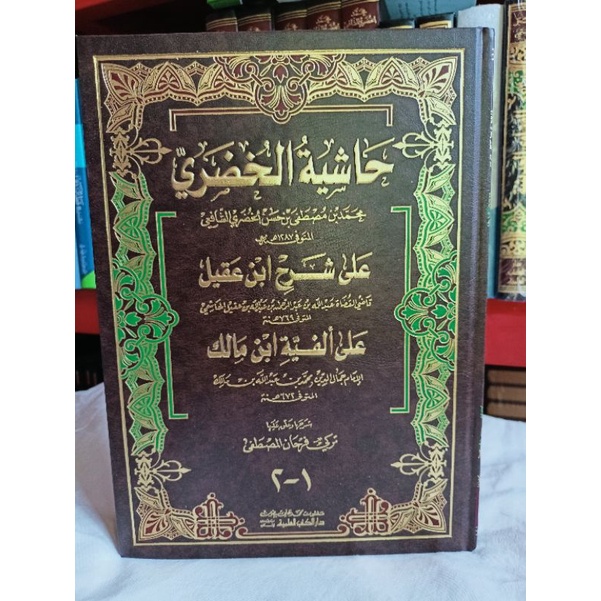 حَاشِيَةُ الخُضَرِيّ
محمد بن مصطفى بن حسن الخضري الشافعي
المتوفى ١٢٨٧ هـ
عَلى شَرْح ابْن عَقيل
قاضي القضاة عبد الله بن عبد الرحمن بن عبد الله بن عقيل الهاشمي
المتوفى ٧٦٩ هـ سنة
عَلى ألفيّة ابْن مَالك
الإمام جمال الدين محمد بن عبد الله بن مالك
المتوفى ٦٧٢ هـ سنة
شرحها وعلق عليها
تركي فرحان المصطفى
١-٢
دار الكتب العلمية